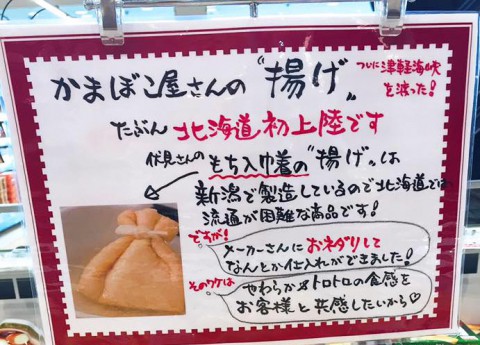 かまぼこ屋さんの"揚げ"
ついに津軽海峡
を渡った!
たぶん 北海道初上陸です
伏見さんの
もち入巾着の"揚げ"は
新潟で製造しているので北海道での
流通が困難な商品です!
ですが!
メーカーさんにおネダリして
なんとか仕入れができました!
そのワケは
やわらか&トロトロの食感を
お客様と共感したいから♡